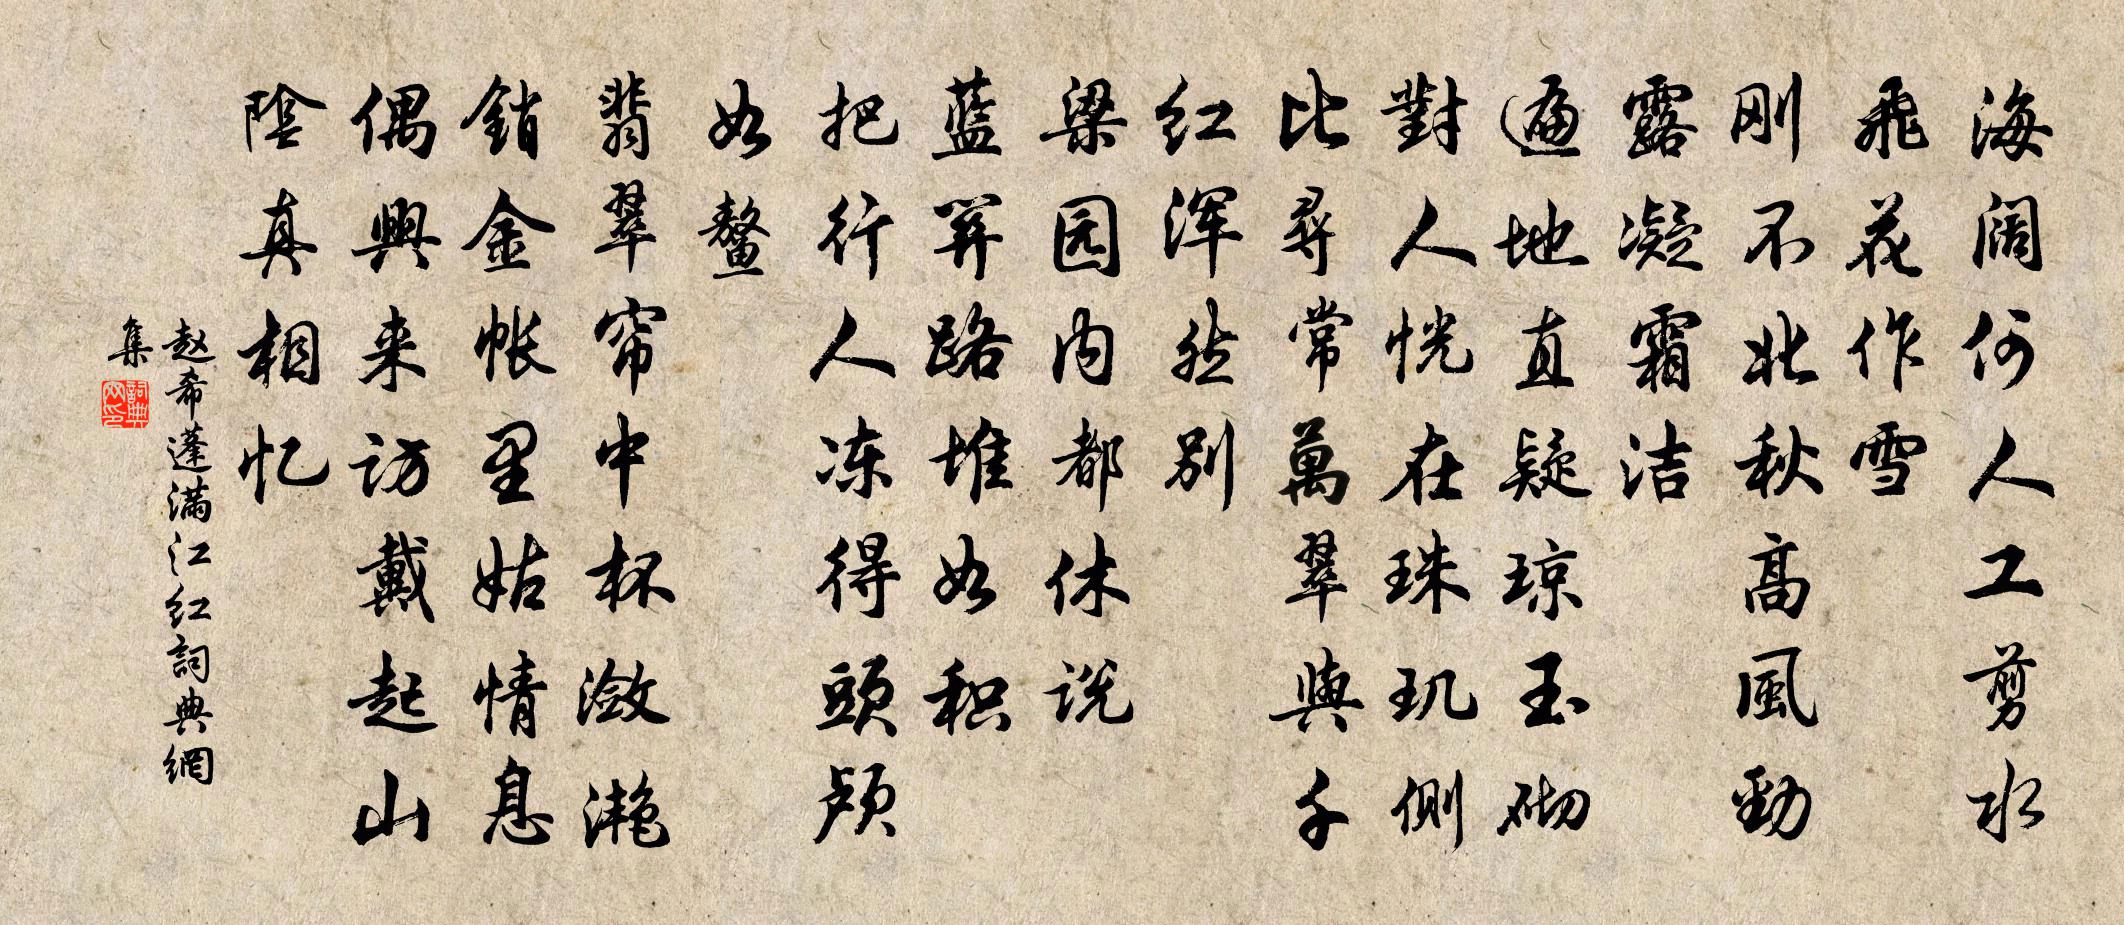 海阔何人工剪水
飛花作雪
刚不比秋高風勁
露凝霜洁
遍地直疑琼玉砌
對人恍在珠玑側
比尋常萬翠與千
红浑然别
梁园内都休说
蓝關路堆如积
把行人冻得頭颅
如鳌
翡翠帘中杯潋滟
銷金帐里姑情息
偶興来访戴起山
陰真相忆
赵希蓬满江红詞典網
集
詞典网印